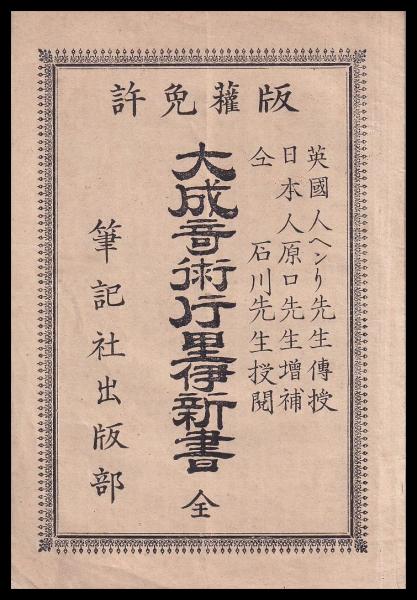 版權免許
英國人ヘンリ先生傳授
日本人原口先生增補
仝 石川先生挍閲
大成竒術行里伊新書 全
筆記社出版部